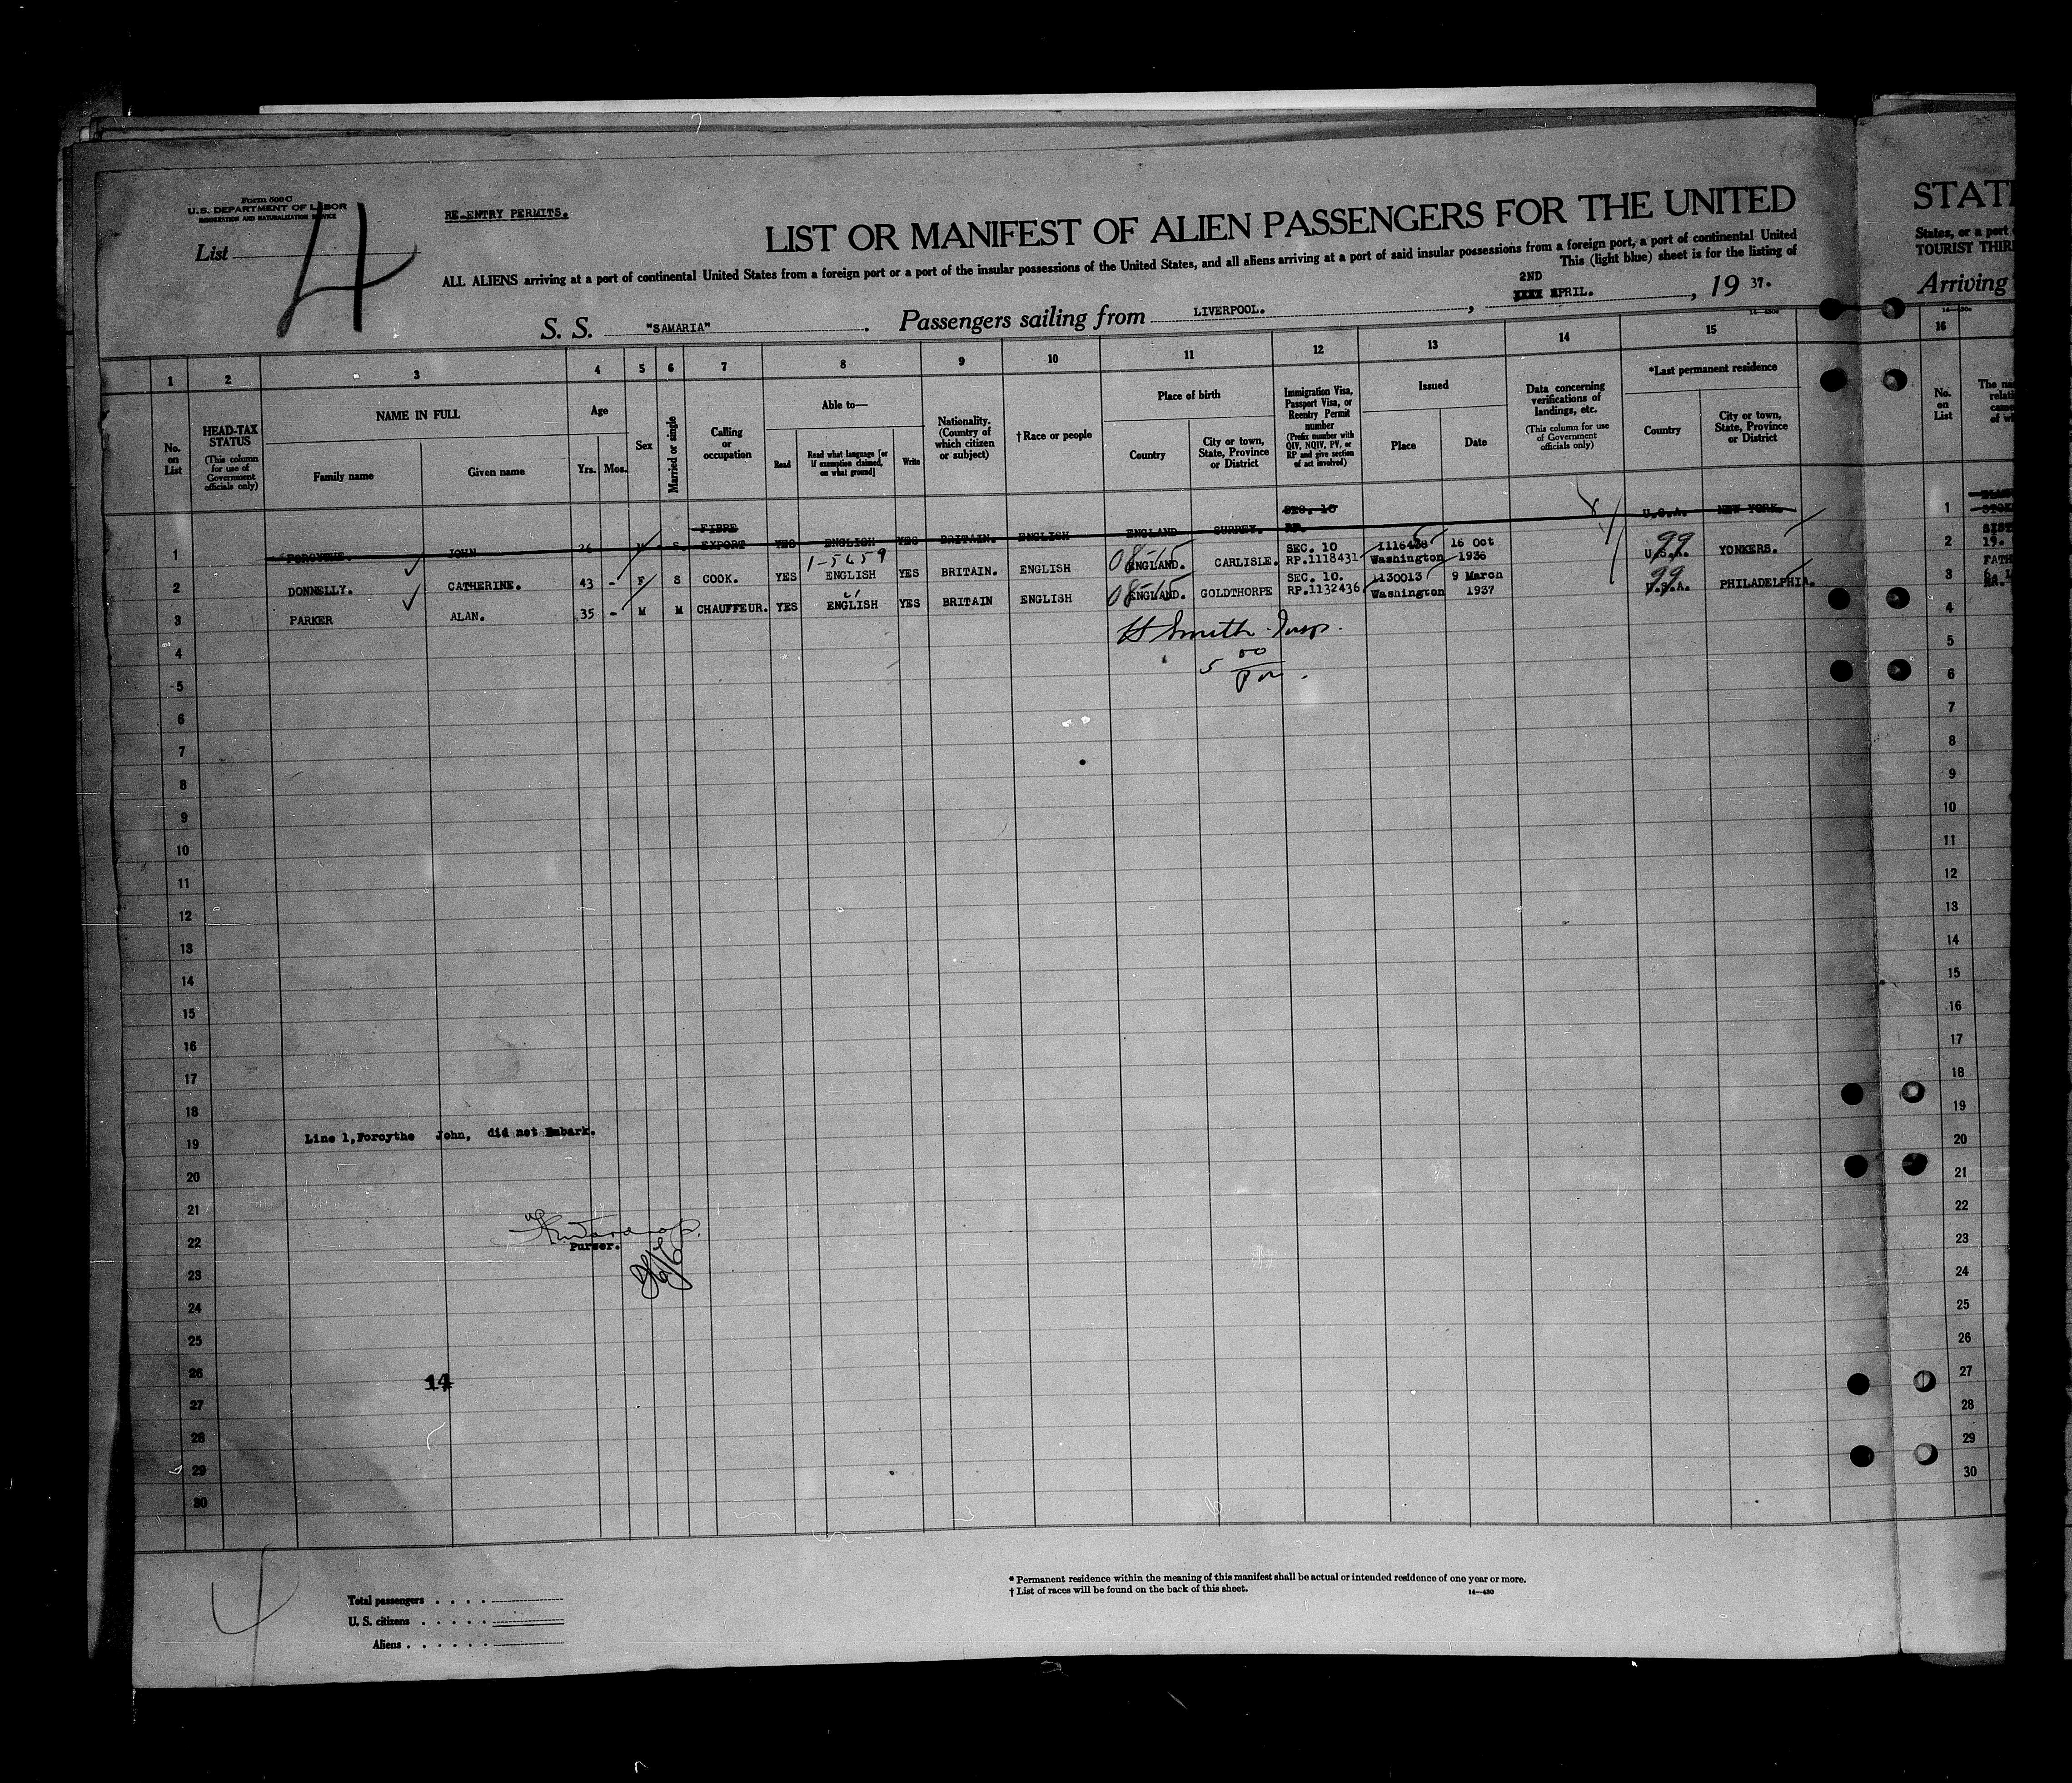 Form 500 C
U.S. DEPARTMENT OF LABOR
IMMIGRATION AND NATURALIZATION SERVICE
List 4
RE-ENTRY PERMITS.
LIST OR MANIFEST OF ALIEN PASSENGERS FOR THE UNITED
ALL ALIENS arriving at a port of continental United States from a foreign port or a port of the insular possessions of the United States, and all aliens arriving at a port of said insular possessions from a foreign port, a port of continental United
This (light blue) sheet is for the listing of
S. S. "SAMARIA". Passengers sailing from LIVERPOOL., 2ND APRIL., 19 37.
STAT
States, or a port
TOURIST THIR
Arriving
1 2 3 4 5 6 7 8 9 10 11 12 13 14 15 16
No. on List
HEAD-TAX STATUS
(This column for use of Government officials only)
NAME IN FULL
Family name
Given name
Age
Yrs. Mos.
Sex
Married or single
Calling or occupation
Able to—
Read
Read what language [or if exemption claimed, on what ground]
Write
Nationality. (Country of which citizen or subject)
† Race or people
Place of birth
Country
City or town, State, Province or District
Immigration Visa, Passport Visa, or Reentry Permit number
(Prefix number with QIV, NQIV, PV, or RP and give section of act involved)
Issued
Place
Date
Data concerning verifications of landings, etc.
(This column for use of Government officials only)
*Last permanent residence
Country
City or town, State, Province or District
No. on List
1 FORCYTHE. JOHN 26 M S. FIBRE EXPORT YES ENGLISH YES BRITAIN. ENGLISH ENGLAND SURREY. SEC. 10 RP. U.S.A. NEW YORK.
1-5659
2 DONNELLY. CATHERINE. 43 - F S COOK. YES ENGLISH YES BRITAIN. ENGLISH 08-15 ENGLAND. CARLISLE. SEC. 10 RP.1118431 Washington 16 Oct 1936 99 U.S.A. YONKERS.
3 PARKER ALAN. 35 - M M CHAUFFEUR. YES ENGLISH YES BRITAIN ENGLISH 08-15 ENGLAND. GOLDTHORPE SEC. 10. RP.1132436 1130013 Washington 9 March 1937 99 U.S.A. PHILADELPHIA.
H Smith Insp.
5 00
Pm.
4
5
6
7
8
9
10
11
12
13
14
15
16
17
18
19 Line 1, Forcythe John, did not Embark.
20
21
22
Purser.
23
24
25
26
14
27
28
29
30
4
Total passengers
U. S. citizens
Aliens
* Permanent residence within the meaning of this manifest shall be actual or intended residence of one year or more.
† List of races will be found on the back of this sheet.
14—430